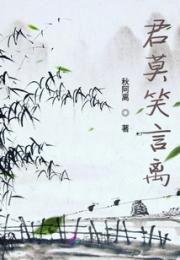 君莫笑言离
秋阿离 ◎ 著